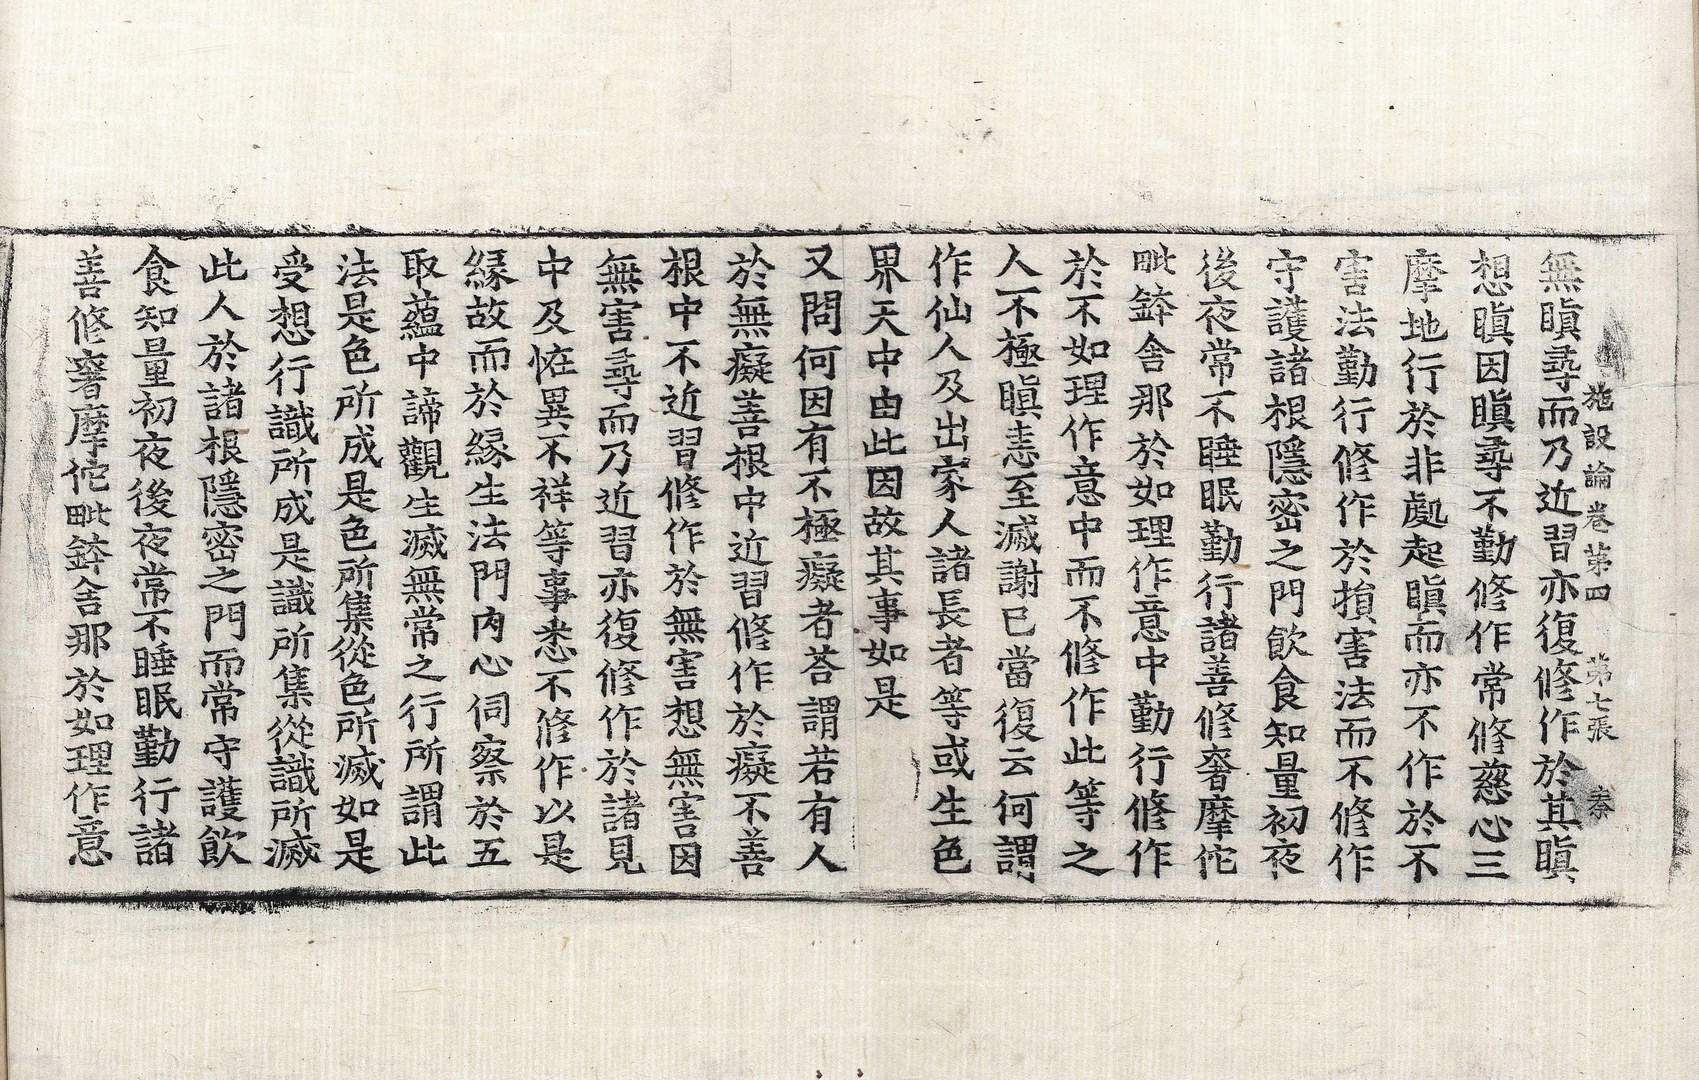 施設論卷第四　第七張　秦
無瞋尋而乃近習亦復修作於其瞋
想瞋因瞋尋不勤修作常修慈心三
摩地行於非處起瞋而亦不作於不
害法勤行修作於損害法而不修作
守護諸根隱密之門飲食知量初夜
後夜常不睡眠勤行諸善修奢摩佗
毗鉢舍那於如理作意中勤行修作
於不如理作意中而不修作此等之
人不極瞋恚至滅謝已當復云何謂
作仙人及出家人諸長者等或生色
界天中由此因故其事如是
又問何因有不極癡者荅謂若有人
於無癡善根中近習修作於癡不善
根中不近習修作於無害想無害因
無害尋而乃近習亦復修作於諸見
中及恠異不祥等事悉不修作以是
緣故而於緣生法門內心伺察於五
取蘊中諦觀生滅無常之行所謂此
法是色所成是色所集從色所滅如是
受想行識所成是識所集從識所滅
此人於諸根隱密之門而常守護飲
食知量初夜後夜常不睡眠勤行諸
善修奢摩佗毗鉢舍那於如理作意